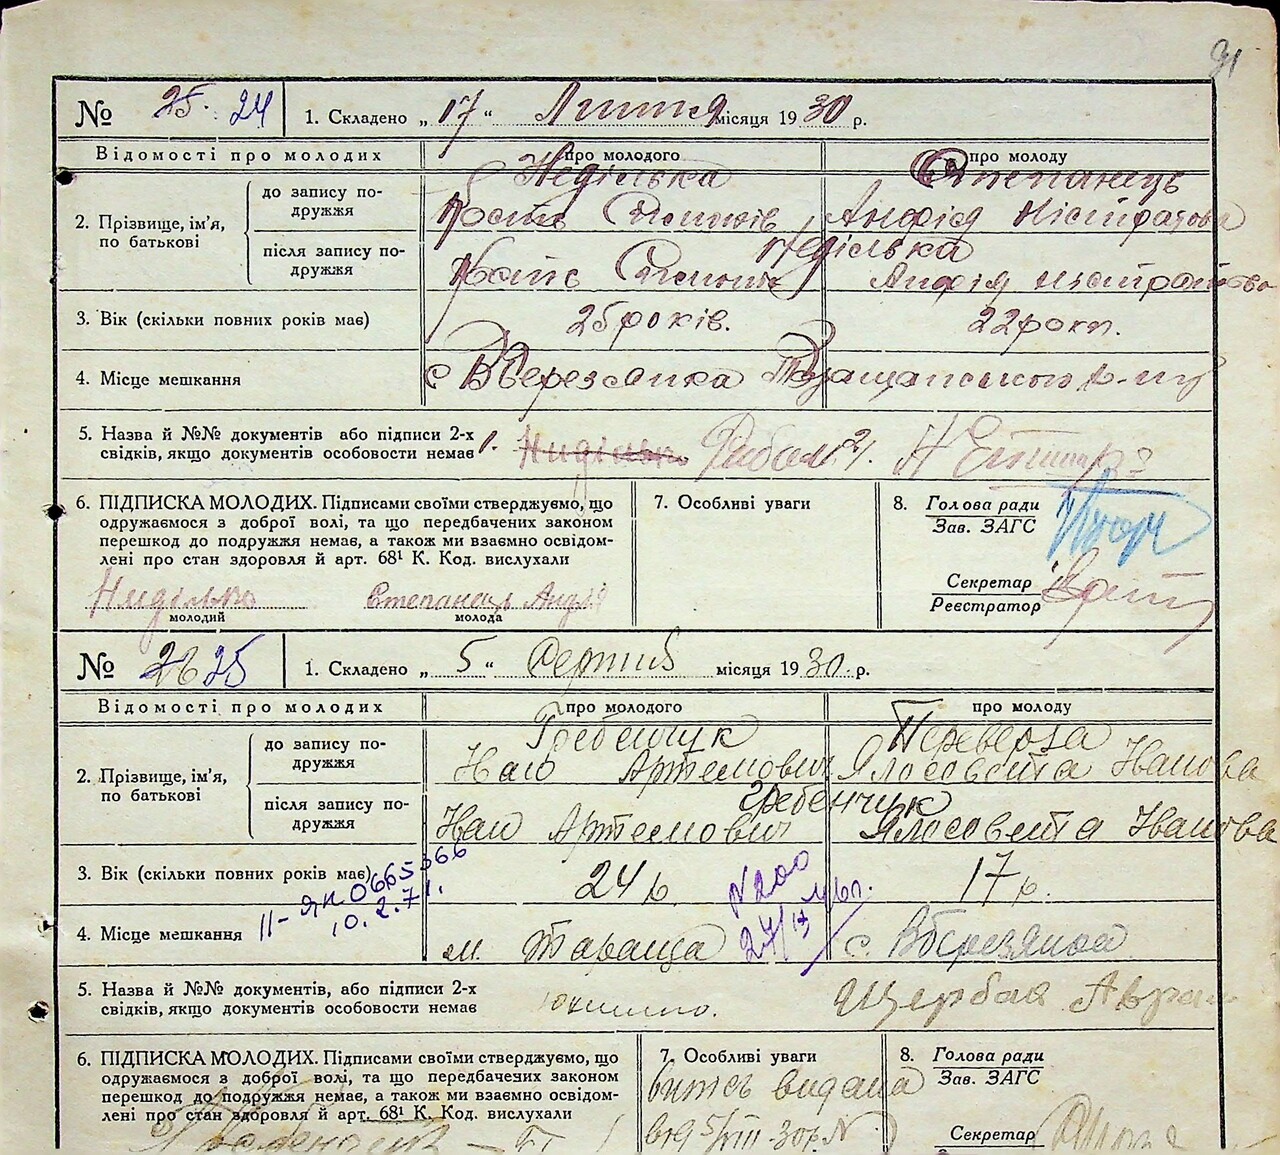 91
№ 25. 24 1. Складено „17“ Липня місяця 1930 р.
Відомості про молодих про молодого про молоду
Неділька Степанець
до запису по-
дружжя
2. Прізвище, ім'я,
по батькові
Анфія
після запису по-
дружжя
Неділька
Анфія
3. Вік (скільки повних років має) 25 років. 22 роки.
4. Місце мешкання с Вберезянка Таращанського р-ну
5. Назва й №№ документів або підписи 2-х
свідків, якщо документів особовости немає 1. 2.
6. ПІДПИСКА МОЛОДИХ. Підписами своїми стверджуємо, що
одружаємося з доброї волі, та що передбачених законом
перешкод до подружжя немає, а також ми взаємно освідом-
лені про стан здоровля й арт. 68¹ К. Код. вислухали
Ниділько Степанець
молодий молода
7. Особливі уваги
8. Голова ради
Зав. ЗАГС
Секретар
Реєстратор
№ 26 25 1. Складено „5“ Серпня місяця 1930 р.
Відомості про молодих про молодого про молоду
Гребенчук Переверза
до запису по-
дружжя
2. Прізвище, ім'я,
по батькові
Артемович Ялосовета Іванова
після запису по-
дружжя
Гребенчук
Артемович Ялосовета Іванова
3. Вік (скільки повних років має) 24 р. 17 р.
II-ЯК 0665366
10.2.71.
N 200
4. Місце мешкання м. Тараща с. Вберезянка
5. Назва й №№ документів, або підписи 2-х
свідків, якщо документів особовости немає Щербак
6. ПІДПИСКА МОЛОДИХ. Підписами своїми стверджуємо, що
одружаємося з доброї волі, та що передбачених законом
перешкод до подружжя немає, а також ми взаємно освідом-
лені про стан здоровля й арт. 68¹ К. Код. вислухали
7. Особливі уваги
витяг видана
5/VIII-30р. N
8. Голова ради
Зав. ЗАГС
Секретар